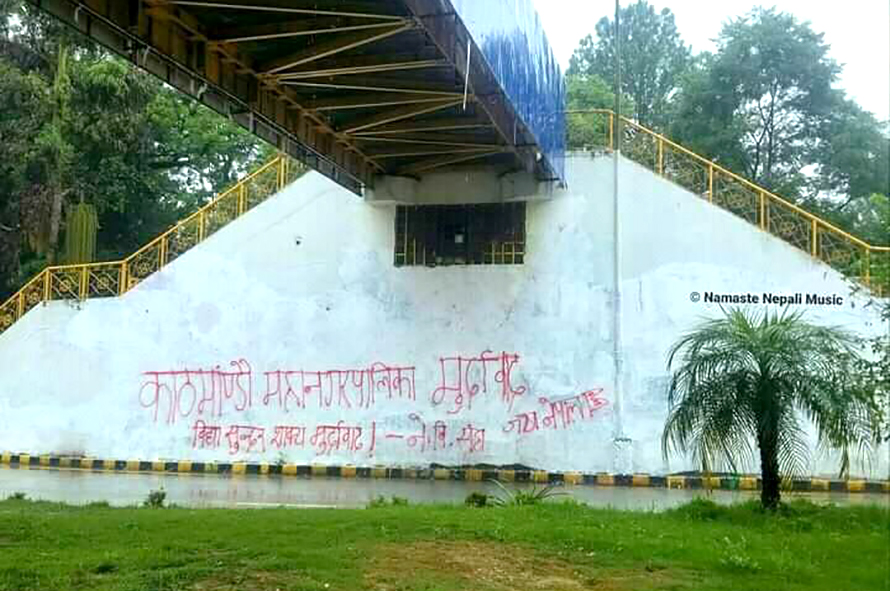 © Namaste Nepali Music
काठमाण्डौ महानगरपालिका मुर्दावाद
विद्या सुन्दर शाक्य मुर्दावाद! - ने. वि. संघ
जय नेपाल